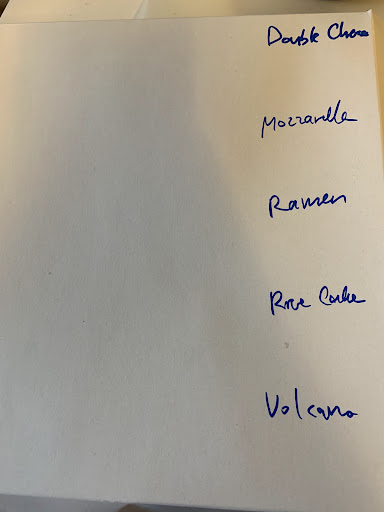 Double Cheese
Mozzarella
Ramen
Rice Cake
Volcano